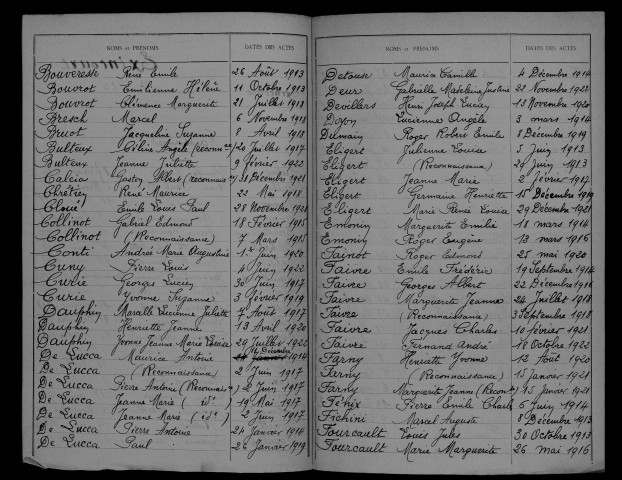 NOMS et PRÉNOMS DATES DES ACTES
Bouveresse René Emile 26 Août 1913
Bouvrot Emilienne Hélène 11 Octobre 1913
Bouvrot Clémence Marguerit 21 Juillet 1918
Bresch Marcel 6 Novembre 1918
Bruot Jacqueline Suzanne 8 Avril 1918
Bulteux Céline Angèle (reconnce) 20 Juillet 1917
Bulteux Jeanne Juliette 9 Février 1922
Calcia Gaston Albert (reconnais) 31 Décembre 1921
Chrétien René Maurice 22 Mai 1918
Emile Louis Paul 28 Novembre 1921
Collinot Gabriel Edmond 18 Février 1915
Collinot (Reconnaissance) 7 Mars 1915
Conti Andrée Marie Augustine 1er Juin 1920
Cuny Pierre Louis 4 Juin 1922
Curie Georges Lucien 30 Juin 1917
Curie Yvonne Suzanne 3 Février 1919
Dauphin Marcelle Lucienne Juliette 7 Août 1917
Dauphin Henriette Jeanne 13 Avril 1920
Dauphin Yvonne Jeanne Marie Louise 29 Juillet 1922
De Lucca Maurice Antoine 14 Décembre 1914
De Lucca (Reconnaissance) 2 Juin 1917
De Lucca Pierre Antoine (Reconnais) 2 Juin 1917
De Lucca Jeanne Marie 19 Mai 1917
De Lucca Jeanne Marie (id) 2 Juin 1917
De Lucca Pierre Antoine 24 Janvier 1914
De Lucca Paul 26 Janvier 1919
NOMS et PRÉNOMS DATES DES ACTES
Detouse Maurice Camille 4 Décembre 1914
Deur Gabrielle Madeleine Justine 22 Novembre 1922
Devillers Henri Joseph Lucien 13 Novembre 1920
Doyon Lucienne Angèle 3 mars 1914
Dumain Roger Robert Emile 8 Décembre 1919
Eligert Julienne Louise 5 Juin 1913
Eligert (Reconnaissance) 29 Juin 1913
Eligert Jeanne Marie 2 Février 1917
Eligert Germaine Henriette 15 Décembre 1919
Eligert Marie Renée Louise 29 Décembre 1921
Emonin Marguerite Emilie 18 mars 1914
Emonin Roger Eugène 13 mars 1916
Fainot Roger Edmond 25 mai 1920
Faivre Emile Frédéric 19 Septembre 1914
Faivre Georges Albert 22 Décembre 1916
Faivre Marguerite Jeanne 24 Juillet 1918
Faivre (Reconnaissance) 3 Septembre 1918
Faivre Jacques Charles 10 février 1921
Faivre Fernand André 18 Octobre 1922
Farny Henriette Yvonne 12 Août 1920
Farny (Reconnaissance) 15 janvier 1921
Farny Marguerite Jeanne (Recont) 15 janvier 1921
Félix Pierre Emile Charles 6 Juin 1914
Fichini Marcel Auguste 8 Décembre 1913
Fourcault Louis Jules 30 Octobre 1913
Fourcault Marie Marguerite 26 mai 1916